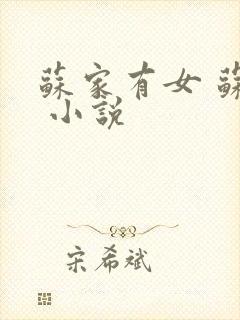 蘇家有女 蘇
小說
宋希斌